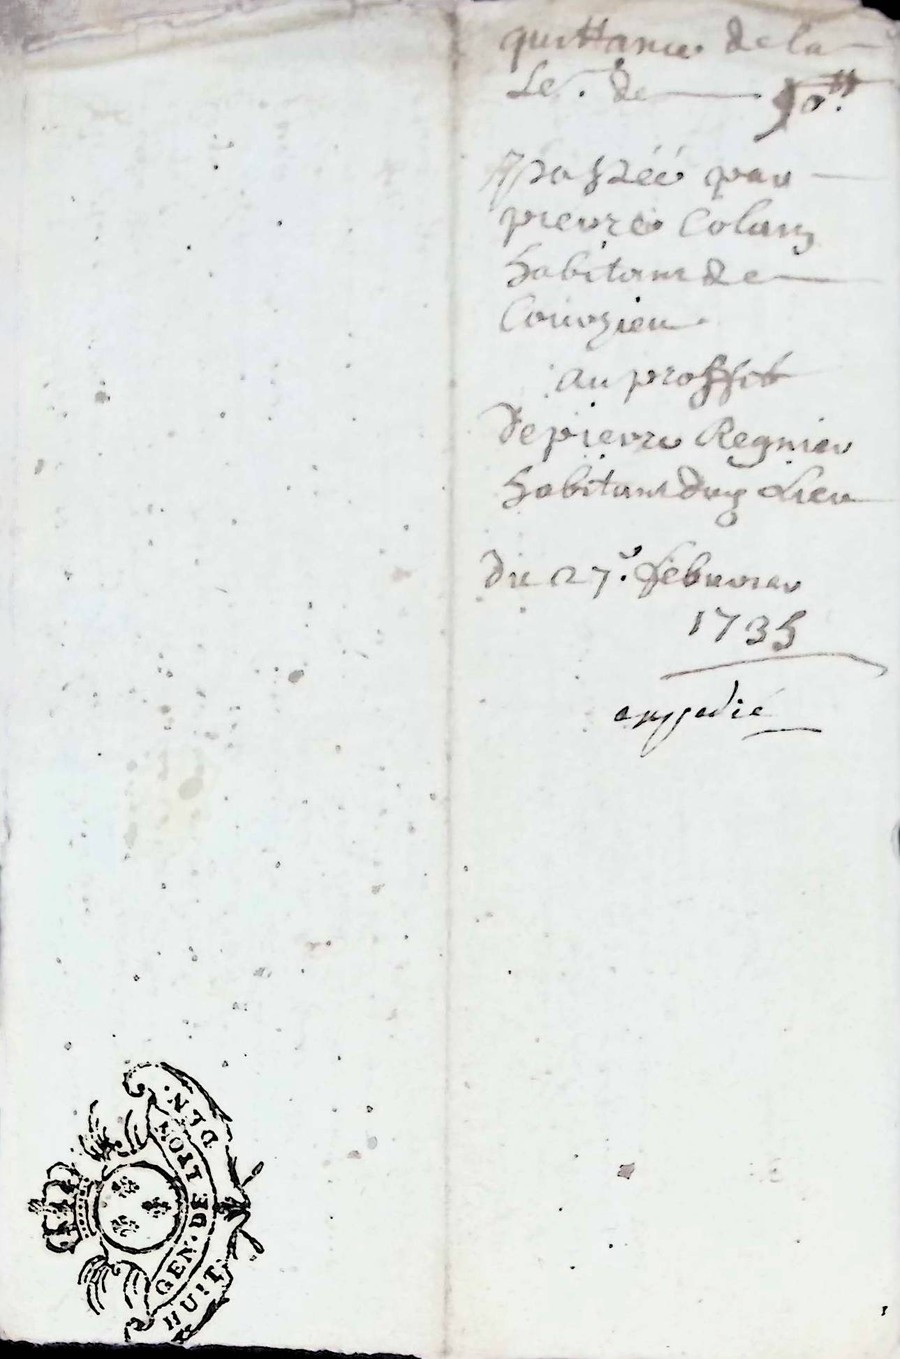 quittance de la
Se. de
passéé par
pierre Colanz
habitant de
Courzieu.
au proffit
de pierre Regnier
habitant du Lieu
du 27.e febvrier
1735
expedié
GEN. DE LYON
HUIT DEN.